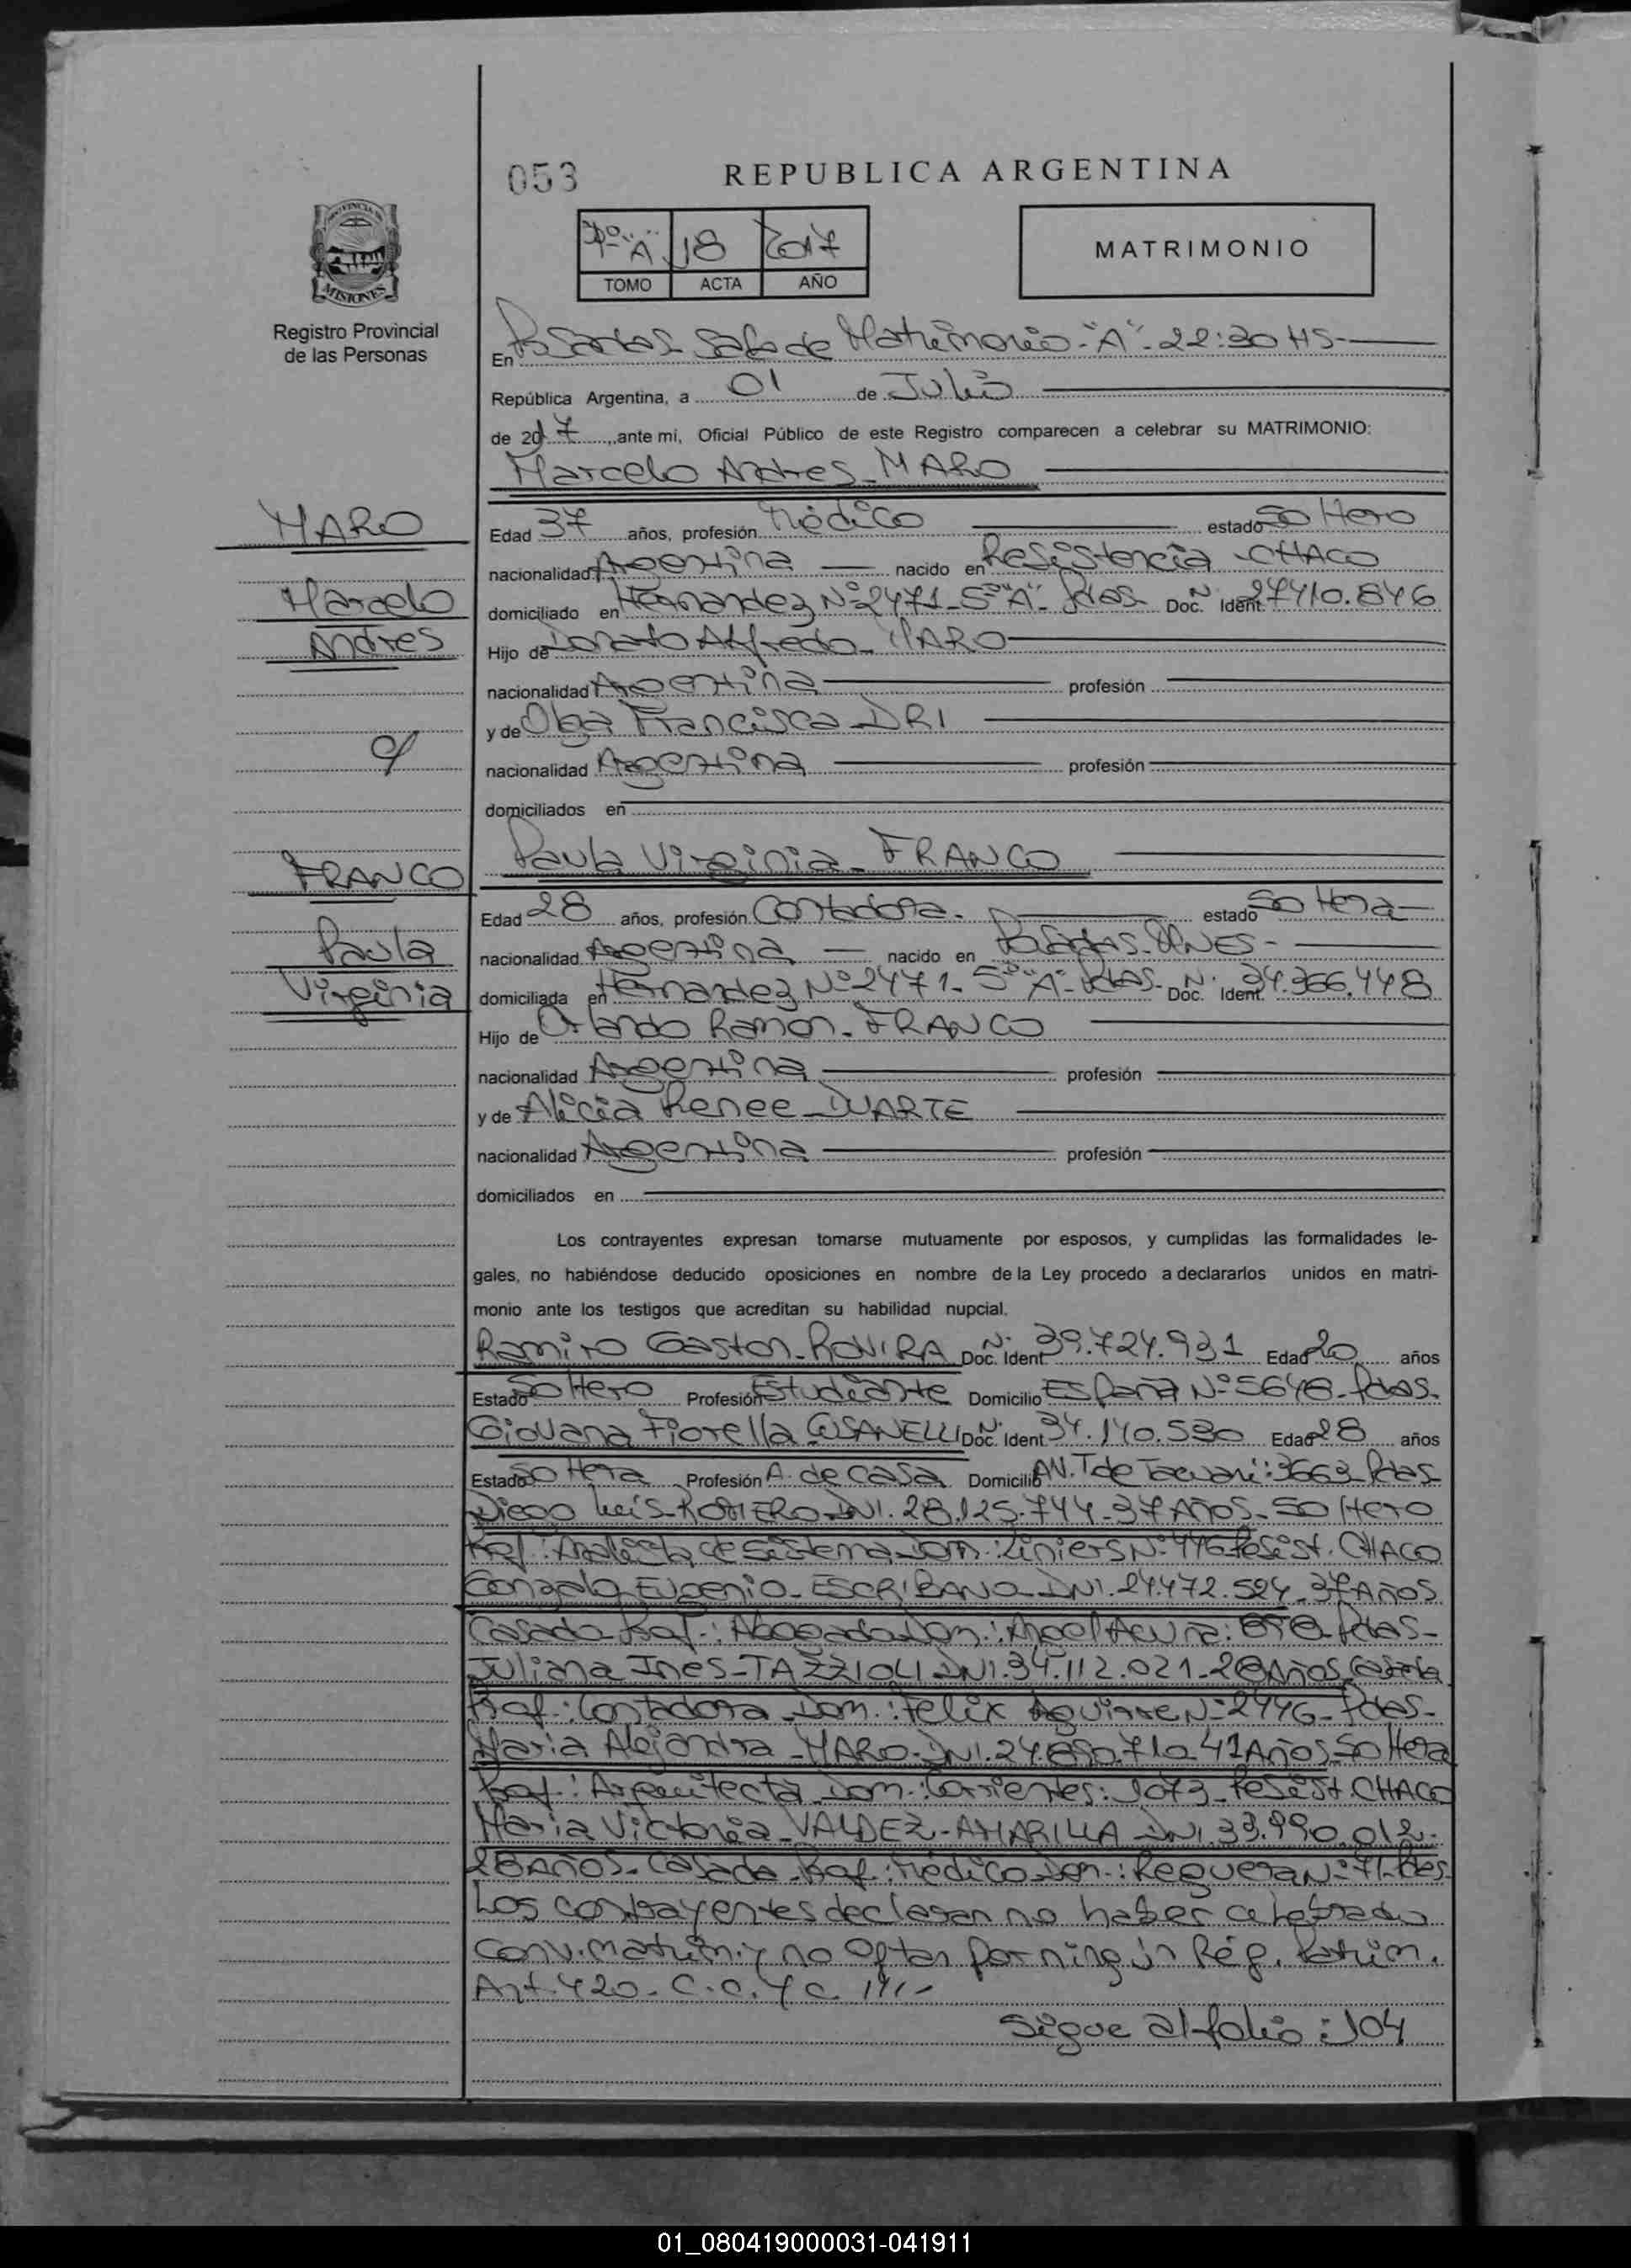 053
REPUBLICA ARGENTINA
"A" 18 2017
TOMO ACTA AÑO
MATRIMONIO
PROVINCIA DE
MISIONES
Registro Provincial
de las Personas
En Posadas Sala de Matrimonio "A" 22:30 HS
República Argentina, a 01 de Julio
de 2017, ante mi, Oficial Público de este Registro comparecen a celebrar su MATRIMONIO:
Marcelo Andres MARO
MARO
Marcelo
Andres
Edad 37 años, profesión Médico estado Soltero
nacionalidad Argentina nacido en Resistencia - CHACO
domiciliado en Hernandez Nº 2471 - 5º "A" - Pdas Doc. N. Ident. 27410.846
Hijo de Donato Alfredo MARO
nacionalidad Argentina profesión
y de Olga Francisca DRI
nacionalidad Argentina profesión
domiciliados en
c/
Paula Virginia FRANCO
FRANCO
Paula
Virginia
Edad 28 años, profesión Contadora. estado Soltera
nacionalidad Argentina nacido en Posadas. MNES -
domiciliada en Hernandez Nº 2471 - 5º "A" - Pdas - Doc. N. Ident. 34.366.448
Hijo de Orlando Ramon FRANCO
nacionalidad Argentina profesión
y de Alicia Renee DUARTE
nacionalidad Argentina profesión
domiciliados en
Los contrayentes expresan tomarse mutuamente por esposos, y cumplidas las formalidades le-
gales, no habiéndose deducido oposiciones en nombre de la Ley procedo a declararlos unidos en matri-
monio ante los testigos que acreditan su habilidad nupcial.
Ramiro Gaston ROVIRA Doc. N. Ident. 39.724.931 Edad 20 años
Estado Soltero Profesión Estudiante Domicilio España Nº 5648 - Pdas.
Giovana Fiorella CUSANELLI Doc. N. Ident. 34.140.530 Edad 28 años
Estado Soltera Profesión A. de casa Domicilio AV. T de Tacuari: 3663 Pdas
Diego Luis ROMERO DNI. 28.125.744 - 37 Años - Soltero
Prof.: Analista de Sistema Dom.: Liniers Nº 446 Resist. CHACO
Gonzalo Eugenio ESCRIBANO DNI. 27.472.524 - 37 Años
Casado Prof.: Abogado Dom.: Angel Acuña: Pdas -
Juliana Ines TAZZIOLI DNI. 34.112.021 - 28 Años Casada
Prof.: Contadora Dom.: Felix Aguirre Nº 2446 - Pdas -
Maria Alejandra MARO - DNI. 24.890.710 41 Años - Soltera
Prof.: Arquitecta Dom.: Corrientes: 1073 - Resist. CHACO
Maria Victoria VALDEZ - AMARILLA DNI. 33.990.012 -
28 Años - Casada Prof.: Médico Dom.: Reguera Nº 71 - Pdas
Los contrayentes declaran no haber celebrado
Conv. matrim. y no optan por ningún Rég. Patrim.
Art. 420 - C.C. Y C. ////-
Sigue al folio: 104
01_080419000031-041911